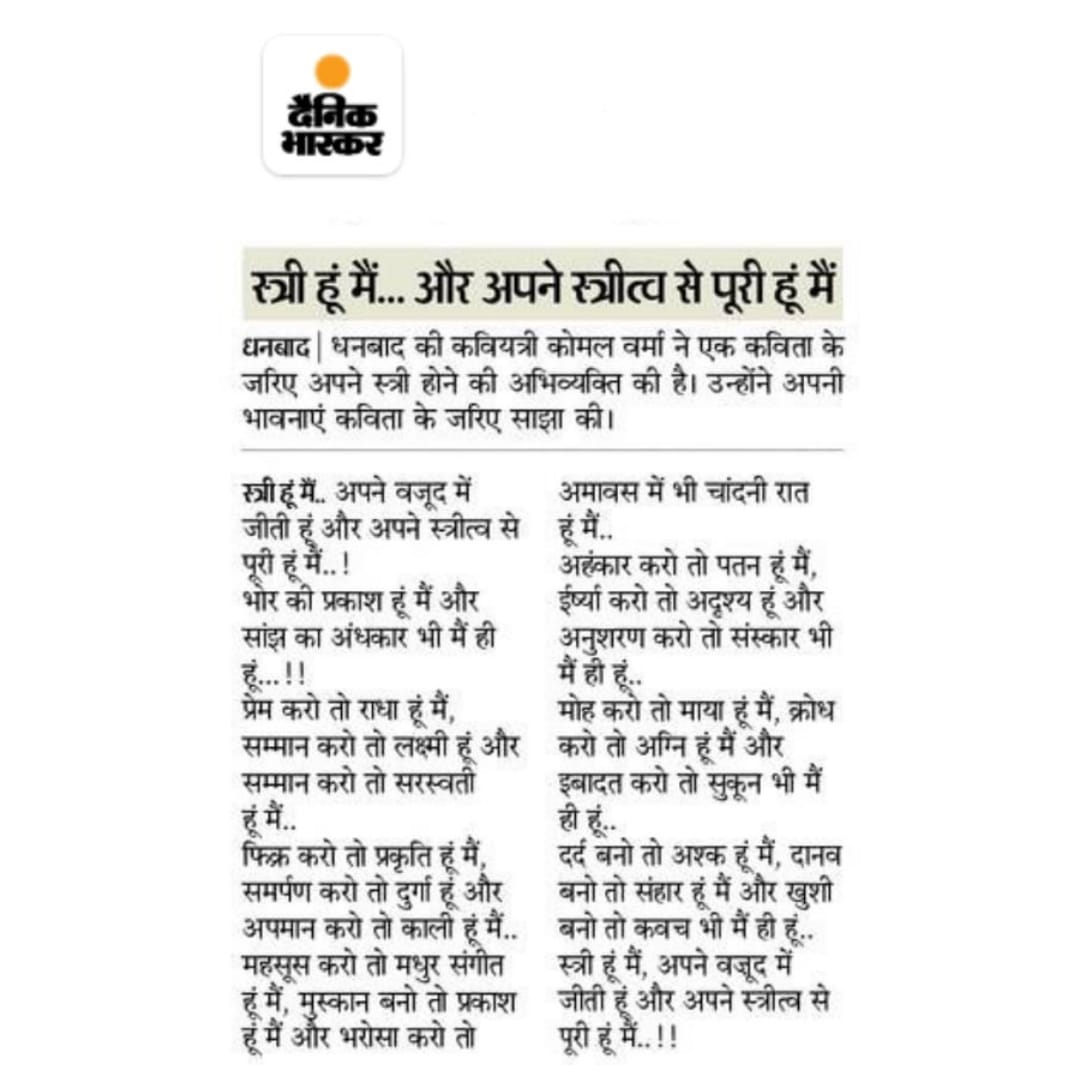 दैनिक
भास्कर
स्त्री हूं मैं... और अपने स्त्रीत्व से पूरी हूं मैं
धनबाद | धनबाद की कवियत्री कोमल वर्मा ने एक कविता के
जरिए अपने स्त्री होने की अभिव्यक्ति की है। उन्होंने अपनी
भावनाएं कविता के जरिए साझा की।
स्त्री हूं मैं.. अपने वजूद में
जीती हूं और अपने स्त्रीत्व से
पूरी हूं मैं..!
भोर की प्रकाश हूं मैं और
सांझ का अंधकार भी मैं ही
हूं...!!
प्रेम करो तो राधा हूं मैं,
सम्मान करो तो लक्ष्मी हूं और
सम्मान करो तो सरस्वती
हूं मैं..
फिक्र करो तो प्रकृति हूं मैं,
समर्पण करो तो दुर्गा हूं और
अपमान करो तो काली हूं मैं..
महसूस करो तो मधुर संगीत
हूं मैं, मुस्कान बनो तो प्रकाश
हूं मैं और भरोसा करो तो
अमावस में भी चांदनी रात
हूं मैं..
अहंकार करो तो पतन हूं मैं,
ईर्ष्या करो तो अदृश्य हूं और
अनुशरण करो तो संस्कार भी
मैं ही हूं..
मोह करो तो माया हूं मैं, क्रोध
करो तो अग्नि हूं मैं और
इबादत करो तो सुकून भी मैं
ही हूं..
दर्द बनो तो अश्क हूं मैं, दानव
बनो तो संहार हूं मैं और खुशी
बनो तो कवच भी मैं ही हूं..
स्त्री हूं मैं, अपने वजूद में
जीती हूं और अपने स्त्रीत्व से
पूरी हूं मैं..!!